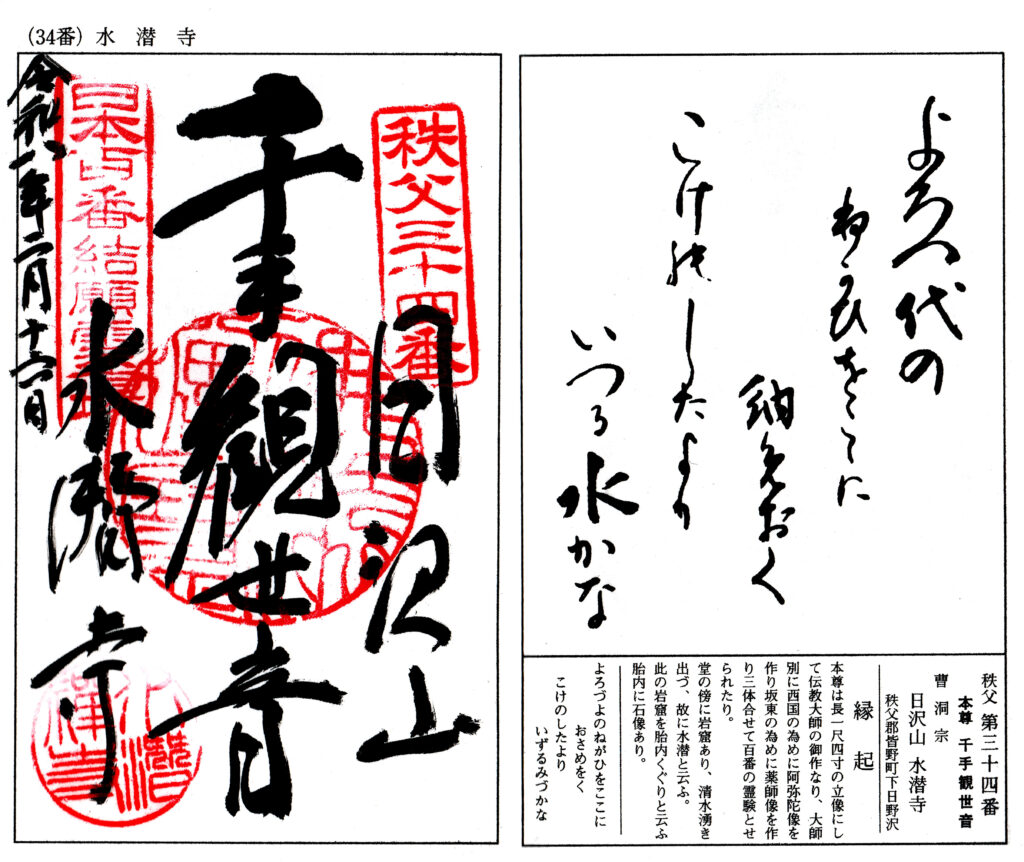 （34番）水潜寺
よろつ代の
ねかひをこゝに
納めおく
こけの したより
いつる水かな
秩父 第三十四番
本尊 千手観世音
曹洞宗
日沢山 水潜寺
秩父郡皆野町下日野沢
縁起
本尊は長一尺四寸の立像にし
て伝教大師の御作なり、大師
別に西国の為めに阿弥陀像を
作り坂東の為めに薬師像を作
り三体合せて百番の霊験とせ
られたり。
堂の傍に岩窟あり、清水湧き
出づ、故に水潜と云ふ。
此の岩窟を胎内くぐりと云ふ
胎内に石像あり。
よろづよのねがひをここに
おさめをく
こけのしたより
いずるみづかな
秩父三十四番
日沢山
千手観世音
水潜寺
日本百番結願霊場
令和八年二月十六日